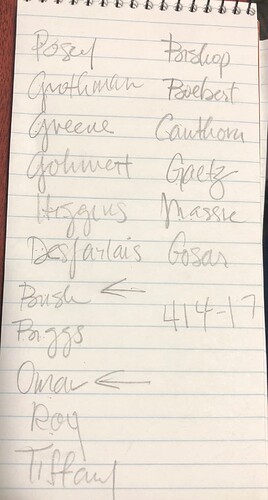 Posey
Grothman
Greene
Gohmert
Higgins
DesJarlais
Bush ←
Biggs
Omar ←
Roy
Tiffany
Bishop
Boebert
Cawthorn
Gaetz
Massie
Gosar
414-17